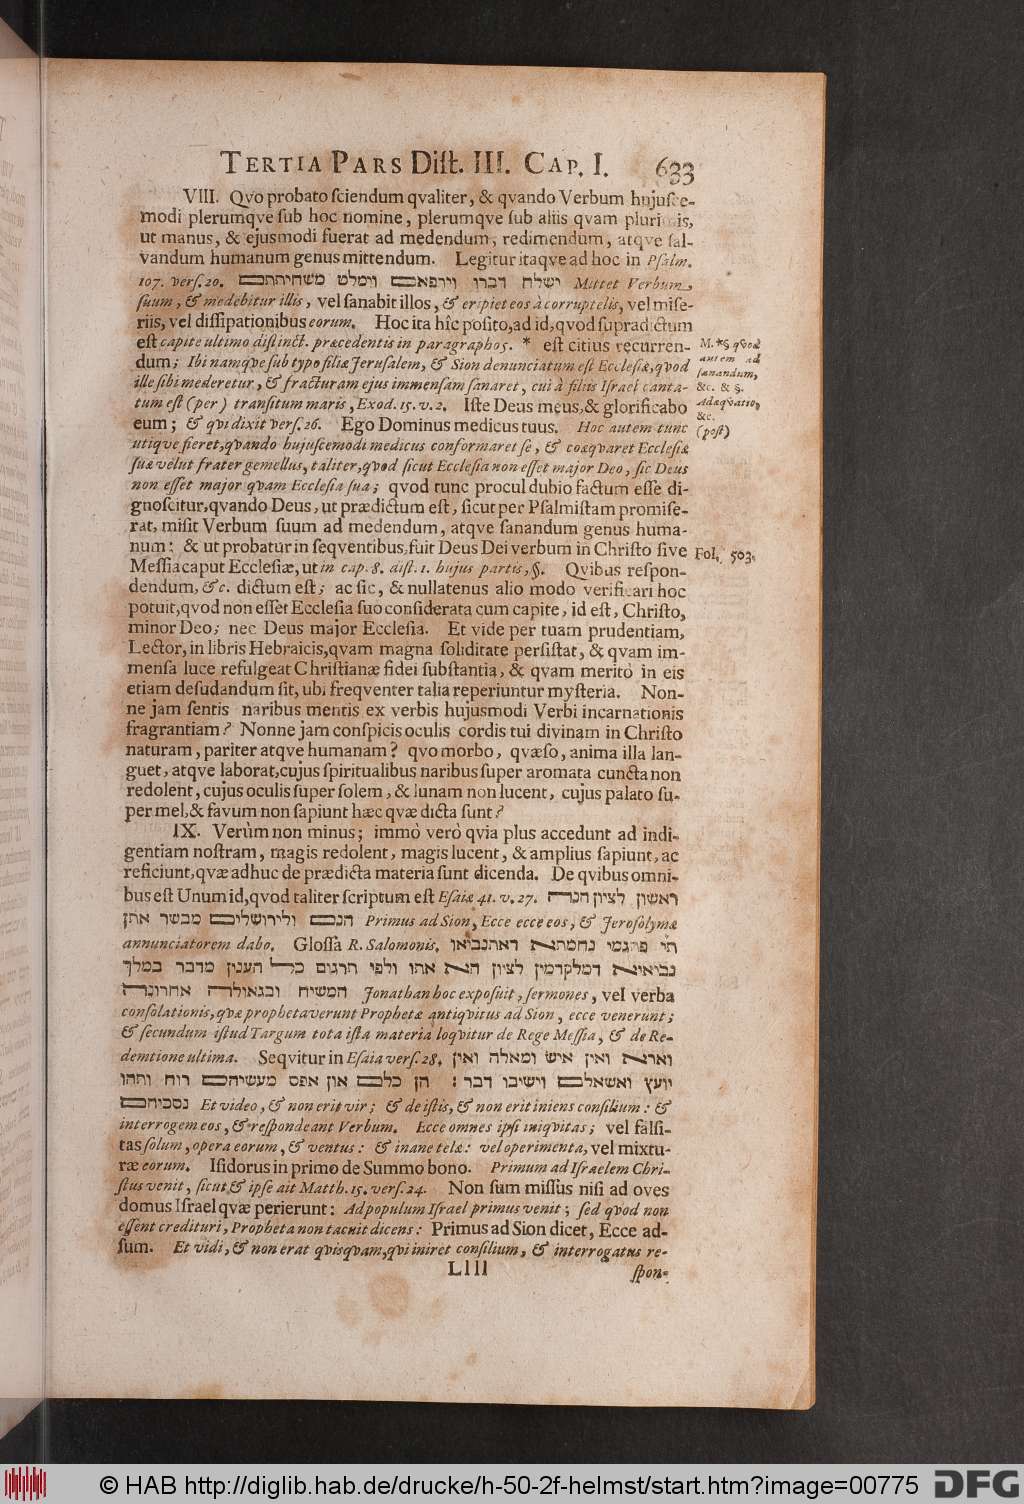 TERTIA PARS Diſt. III. CAP. I. 633
VIII. Qvo probato ſciendum qvaliter, & qvando Verbum hujuſce-
modi plerumqve ſub hoc nomine, plerumqve ſub aliis qvam plurimis,
ut manus, & ejusmodi fuerat ad medendum, redimendum, atqve ſal-
vandum humanum genus mittendum. Legitur itaqve ad hoc in Pſalm.
107. verſ. 20. ישלח דברו וירפאם וימלט משחיתתם Mittet Verbum
ſuum, & medebitur illis, vel ſanabit illos, & eripiet eos à corruptelis, vel miſe-
riis, vel diſſipationibus eorum. Hoc ita hîc poſito, ad id, qvod ſupradictum
eſt capite ultimo diſtinct. præcedentis in paragraphos. * eſt citius recurren-
dum; Ibi namqve ſub typo filiæ Jeruſalem, & Sion denunciatum eſt Eccleſiæ, qvod
ille ſibi mederetur, & fracturam ejus immenſam ſanaret, cui à filiis Iſrael canta-
tum eſt (per) tranſitum maris, Exod. 15. v. 2. Iſte Deus meus, & glorificabo
eum; & qvi dixit verſ. 26. Ego Dominus medicus tuus. Hoc autem tunc
utique fieret, qvando hujuſcemodi medicus conformaret ſe, & coæqvaret Eccleſiæ
ſuæ velut frater gemellus, taliter, qvod ſicut Eccleſia non eſſet major Deo, ſic Deus
non eſſet major qvam Eccleſia ſua; qvod tunc procul dubio factum eſſe di-
gnoſcitur, qvando Deus, ut prædictum eſt, ſicut per Pſalmiſtam promiſe-
rat, miſit Verbum ſuum ad medendum, atqve ſanandum genus huma-
num: & ut probatur in ſeqventibus, fuit Deus Dei verbum in Chriſto ſive
Meſſia caput Eccleſiæ, ut in cap. 8. diſt. 1. hujus partis, §. Qvibus reſpon-
dendum, &c. dictum eſt; ac ſic, & nullatenus alio modo verificari hoc
potuit, qvod non eſſet Eccleſia ſuo conſiderata cum capite, id eſt, Chriſto,
minor Deo; nec Deus major Eccleſia. Et vide per tuam prudentiam,
Lector, in libris Hebraicis, qvam magna ſoliditate perſiſtat, & qvam im-
menſa luce refulgeat Chriſtianæ fidei ſubſtantia, & qvam meritò in eis
etiam deſudandum ſit, ubi freqventer talia reperiuntur myſteria. Non-
ne jam ſentis naribus mentis ex verbis hujusmodi Verbi incarnationis
fragrantiam? Nonne jam conſpicis oculis cordis tui divinam in Chriſto
naturam, pariter atqve humanam? qvo morbo, qvæſo, anima illa lan-
guet, atqve laborat, cujus ſpiritualibus naribus ſuper aromata cuncta non
redolent, cujus oculis ſuper ſolem, & lunam non lucent, cujus palato ſu-
per mel, & favum non ſapiunt hæc qvæ dicta ſunt?
IX. Verùm non minus; immò verò qvia plus accedunt ad indi-
gentiam noſtram, magis redolent, magis lucent, & amplius ſapiunt, ac
reficiunt, qvæ adhuc de prædicta materia ſunt dicenda. De qvibus omni-
bus eſt Unum id, qvod taliter ſcriptum eſt Eſaiæ 41. v. 27. ראשון לציון הנה
הנם ולירושלים מבשר אתן Primus ad Sion, Ecce ecce eos, & Jeroſolymæ
annunciatorem dabo. Gloſſa R. Salomonis. תי פתגמי נחמתא דאתנביאו
נביאיא דמלקדמין לציון הא אתו ולפי תרגום כל הענין מדבר במלך
המשיח ובגאולה אחרונה Jonathan hoc expoſuit, ſermones, vel verba
conſolationis, qvæ prophetaverunt Prophetæ antiqvitus ad Sion, ecce venerunt;
& ſecundum iſtud Targum tota iſta materia loqvitur de Rege Meſſia, & de Re-
demtione ultima. Seqvitur in Eſaia verſ. 28. וארא ואין איש ומאלה ואין
יועץ ואשאלם וישיבו דבר: הן כלם און אפס מעשיהם רוח ותהו
נסכיהם Et video, & non erit vir; & de iſtis, & non erit iniens conſilium: &
interrogem eos, & reſpondeant Verbum. Ecce omnes ipſi iniqvitas; vel falſi-
tas ſolum, opera eorum, & ventus: & inane telæ: vel operimenta, vel mixtu-
ræ eorum. Iſidorus in primo de Summo bono. Primum ad Iſraelem Chri-
ſtus venit, ſicut & ipſe ait Matth. 15. verſ. 24. Non ſum miſſus niſi ad oves
domus Iſrael qvæ perierunt: Ad populum Iſrael primus venit; ſed qvod non
eſſent credituri, Propheta non tacuit dicens: Primus ad Sion dicet, Ecce ad-
ſum. Et vidi, & non erat qvisqvam, qvi iniret conſilium, & interrogatus re-
Llll ſpon-
M. *§ qvod
autem ad
ſanandum,
&c. & §.
Adæqvatio,
&c.
(poſt)
Fol. 503.
© HAB http://diglib.hab.de/drucke/h-50-2f-helmst/start.htm?image=00775
DFG